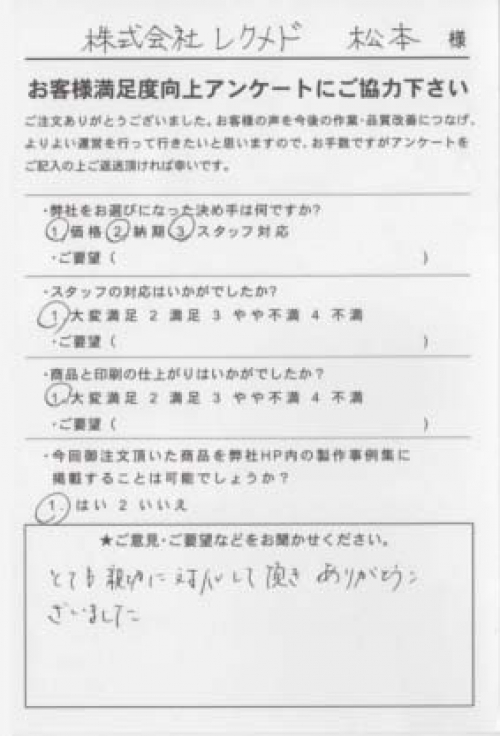 株式会社レクメド 松本 様
お客様満足度向上アンケートにご協力下さい
ご注文ありがとうございました。お客様の声を今後の作業・品質改善につなげ、
よりよい運営を行って行きたいと思いますので、お手数ですがアンケートを
ご記入の上ご返送頂ければ幸いです。
・弊社をお選びになった決め手は何ですか?
1. 価格 2. 納期 3 スタッフ対応
・ご要望 ( )
・スタッフの対応はいかがでしたか?
1 大変満足 2 満足 3 やや不満 4 不満
・ご要望 ( )
・商品と印刷の仕上がりはいかがでしたか?
1. 大変満足 2 満足 3 やや不満 4 不満
・ご要望 ( )
・今回御注文頂いた商品を弊社HP内の製作事例集に
掲載することは可能でしょうか?
1. はい 2 いいえ
★ご意見・ご要望などをお聞かせください。
とても親切に対応して頂き ありがとうご
ざいました